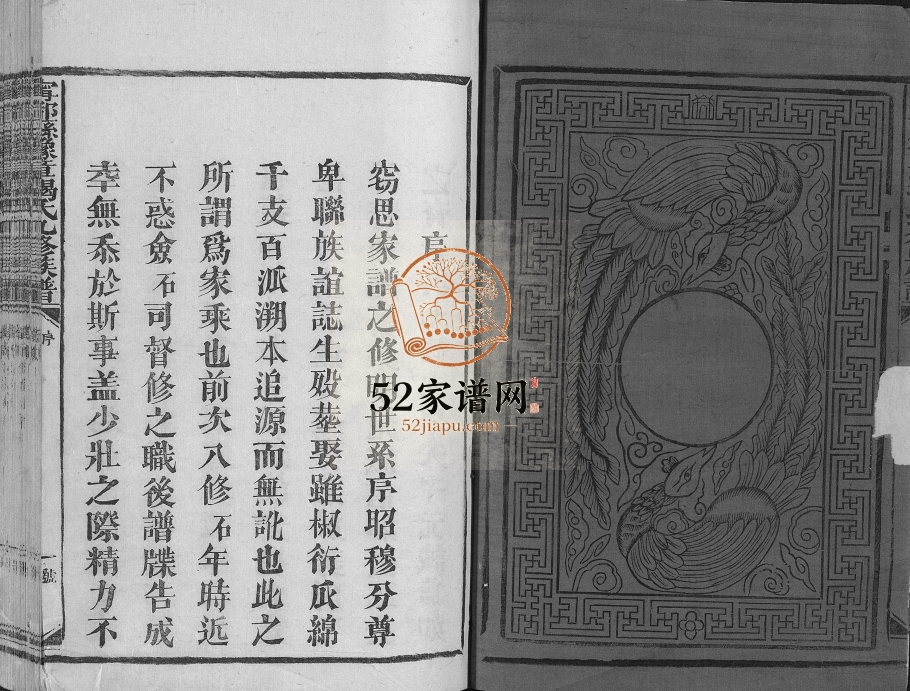 序
窃思家譜之修明世系序昭穆分尊
卑聯族誼誌生殁塟娶雖椒衍瓜綿
千支百派溯本追源而無訛也此之
所謂爲家乘也前次八修石年時近
不惑僉石司督修之職後譜牒告成
幸無忝於斯事盖少壯之際精力不
寧都縣豫章楊氏九修族譜
序
一號
52家谱网
52jiapu.com